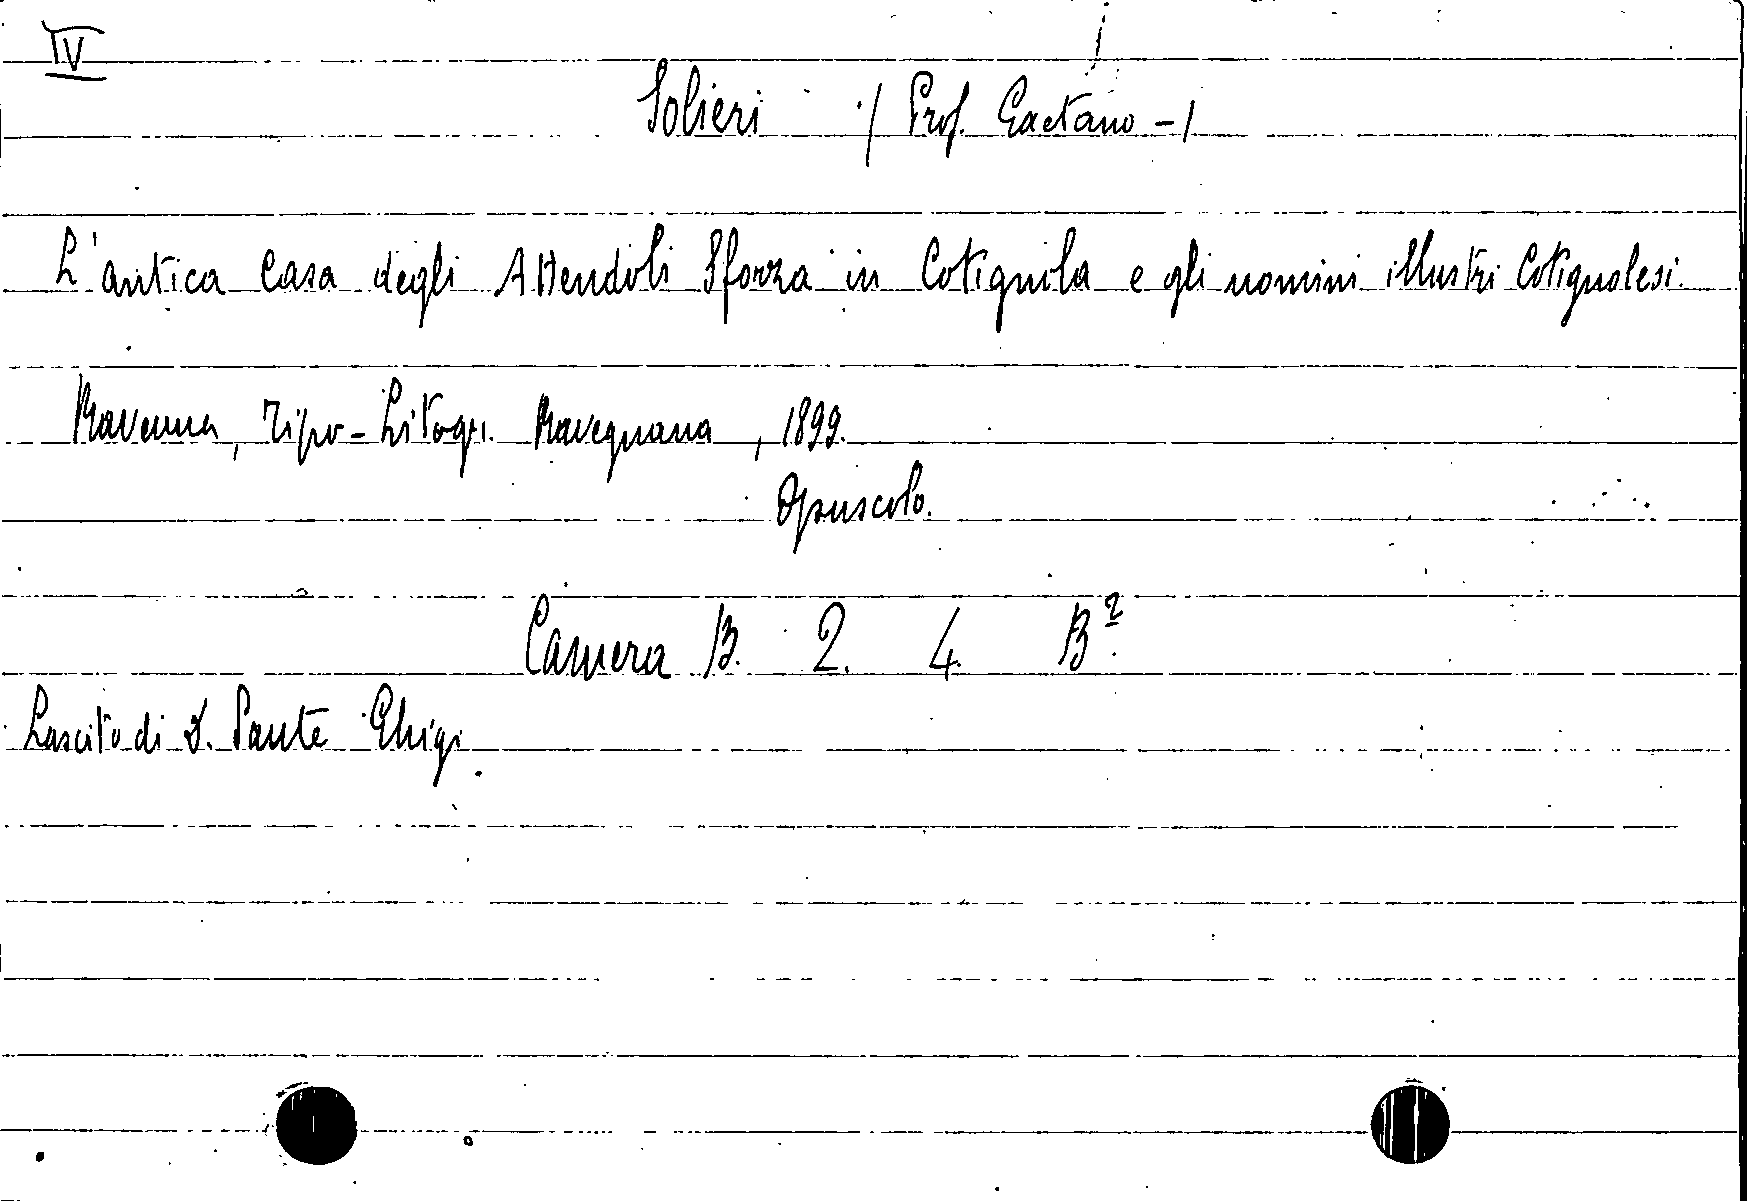 IV
Solieri / Prof. Gaetano - /
L'antica Casa degli Attendoli Sforza in Cotignola e gli uomini illustri Cotignolesi.
Ravenna, Tipo-Litogr. Ravegnana, 1899.
Opuscolo.
Camera B. 2. 4. B².
Lascito di D. Sante Ghigi